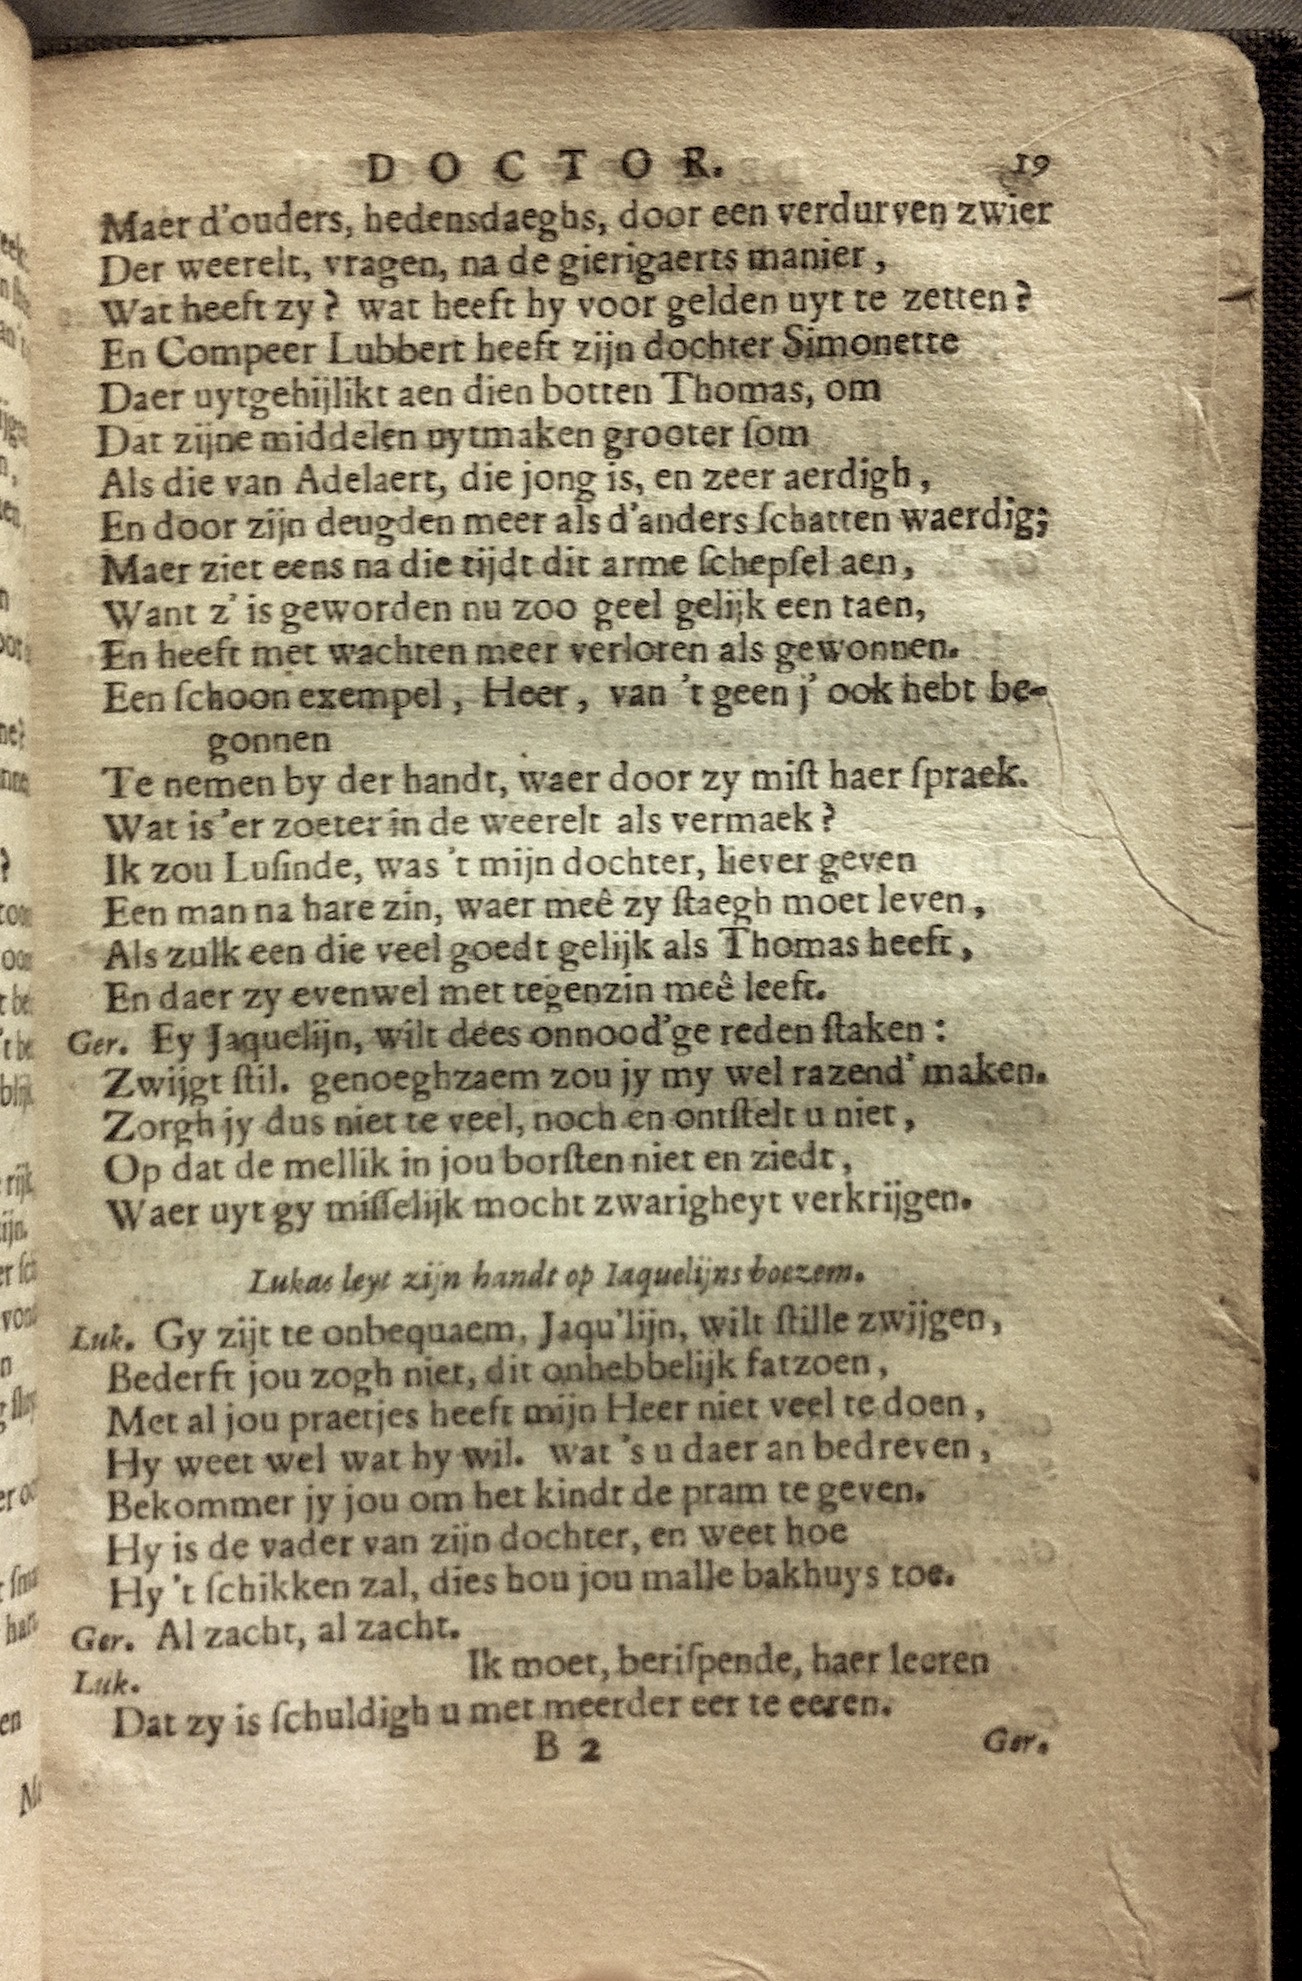 DOCTOR. 19
Maer d'ouders, hedensdaeghs, door een verdurven zwier
Der weerelt, vragen, na de gierigaerts manier,
Wat heeft zy? wat heeft hy voor gelden uyt te zetten?
En Compeer Lubbert heeft zijn dochter Simonette
Daer uytgehijlikt aen dien botten Thomas, om
Dat zijne middelen uytmaken grooter ſom
Als die van Adelaert, die jong is, en zeer aerdigh,
En door zijn deugden meer als d'anders ſchatten waerdig;
Maer ziet eens na die tijdt dit arme ſchepſel aen,
Want z' is geworden nu zoo geel gelijk een taen,
En heeft met wachten meer verloren als gewonnen.
Een ſchoon exempel, Heer, van 't geen j' ook hebt be-
gonnen
Te nemen by der handt, waer door zy miſt haer ſpraek.
Wat is'er zoeter in de weerelt als vermaek?
Ik zou Luſinde, was 't mijn dochter, liever geven
Een man na hare zin, waer meê zy ſtaegh moet leven,
Als zulk een die veel goedt gelijk als Thomas heeft,
En daer zy evenwel met tegenzin meê leeft.
Ger. Ey Jaquelijn, wilt dees onnood'ge reden ſtaken:
Zwijgt ſtil. genoeghzaem zou jy my wel razend' maken.
Zorgh jy dus niet te veel, noch en ontſtelt u niet,
Op dat de mellik in jou borſten niet en ziedt,
Waer uyt gy miſſelijk mocht zwarigheyt verkrijgen.
Lukas leyt zijn handt op Iaquelijns boezem.
Luk. Gy zijt te onbequaem, Jaqu'lijn, wilt ſtille zwijgen,
Bederft jou zogh niet, dit onhebbelijk fatzoen,
Met al jou praetjes heeft mijn Heer niet veel te doen,
Hy weet wel wat hy wil. wat 's u daer an bedreven,
Bekommer jy jou om het kindt de pram te geven.
Hy is de vader van zijn dochter, en weet hoe
Hy 't ſchikken zal, dies hou jou malle bakhuys toe.
Ger. Al zacht, al zacht.
Luk. Ik moet, beriſpende, haer leeren
Dat zy is ſchuldigh u met meerder eer te eeren.
B 2 Ger.